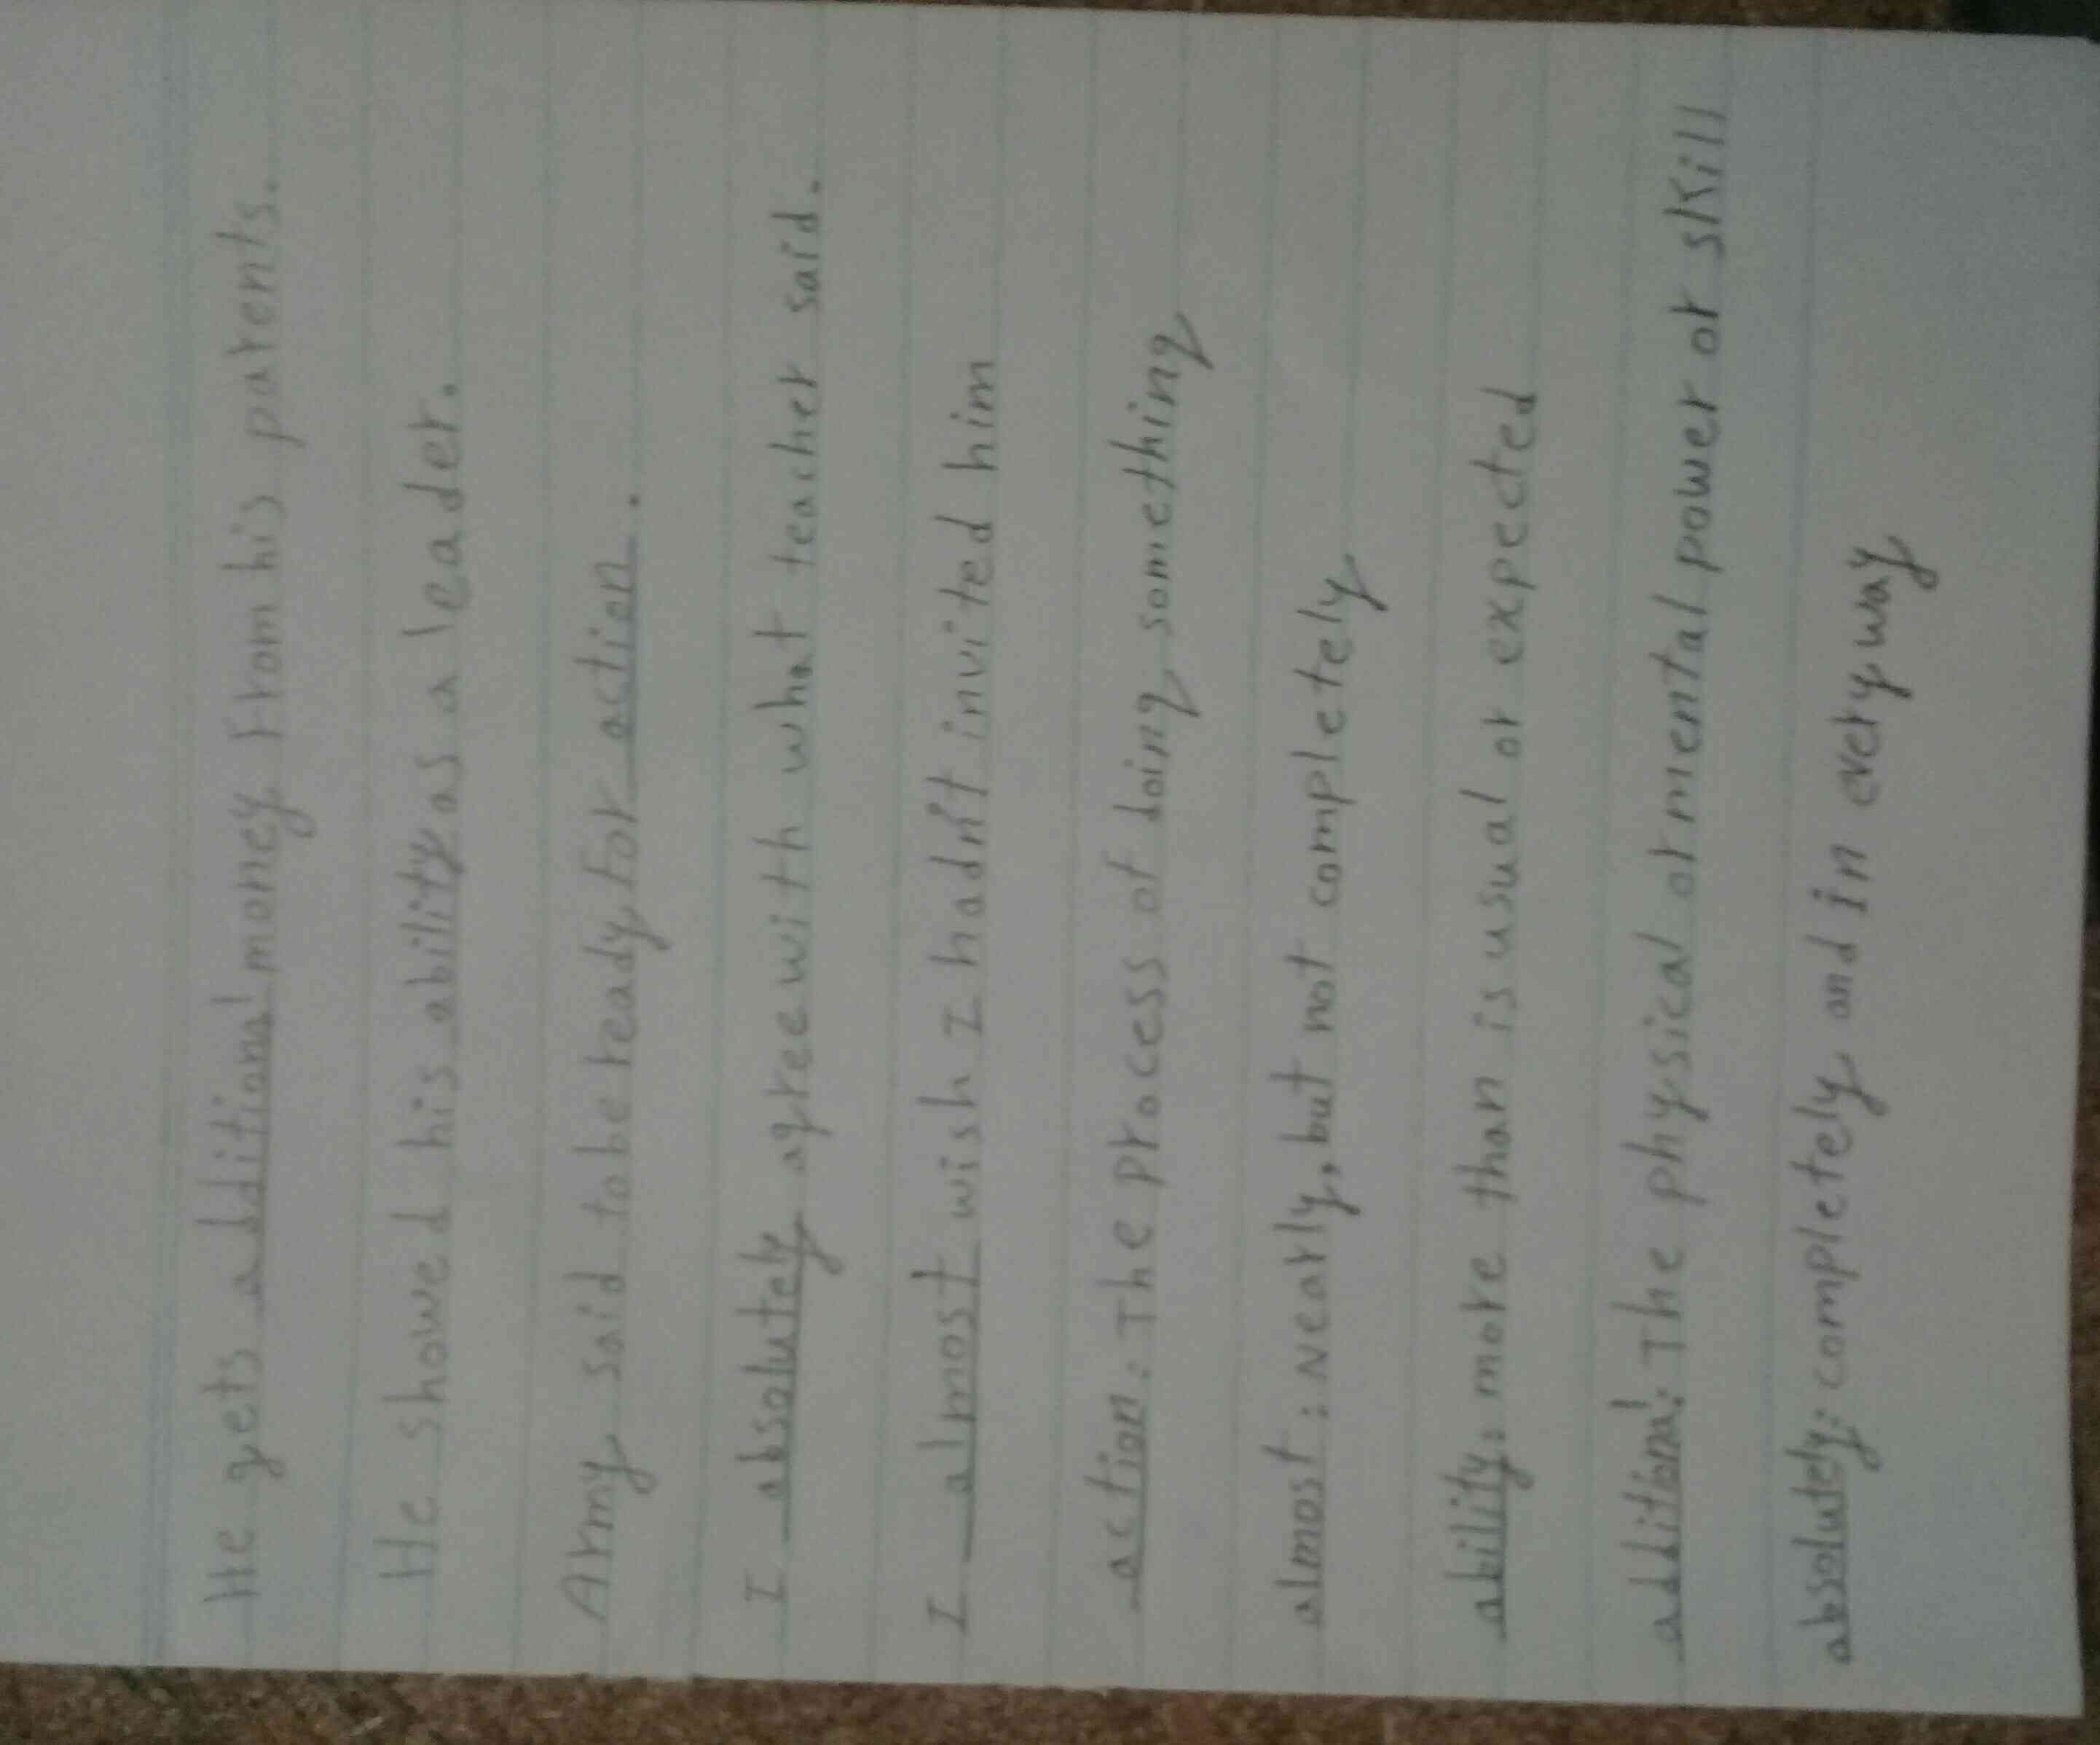 He gets additional money from his parents.
He showed his ability as a leader.
Army said to be ready for action.
I absolutely agree with what teacher said.
I almost wish I hadn't invited him
action: The process of doing something
almost: Nearly, but not completely
ability: more than is usual or expected
additional: The physical or mental power or skill
absolutely: completely and in every way